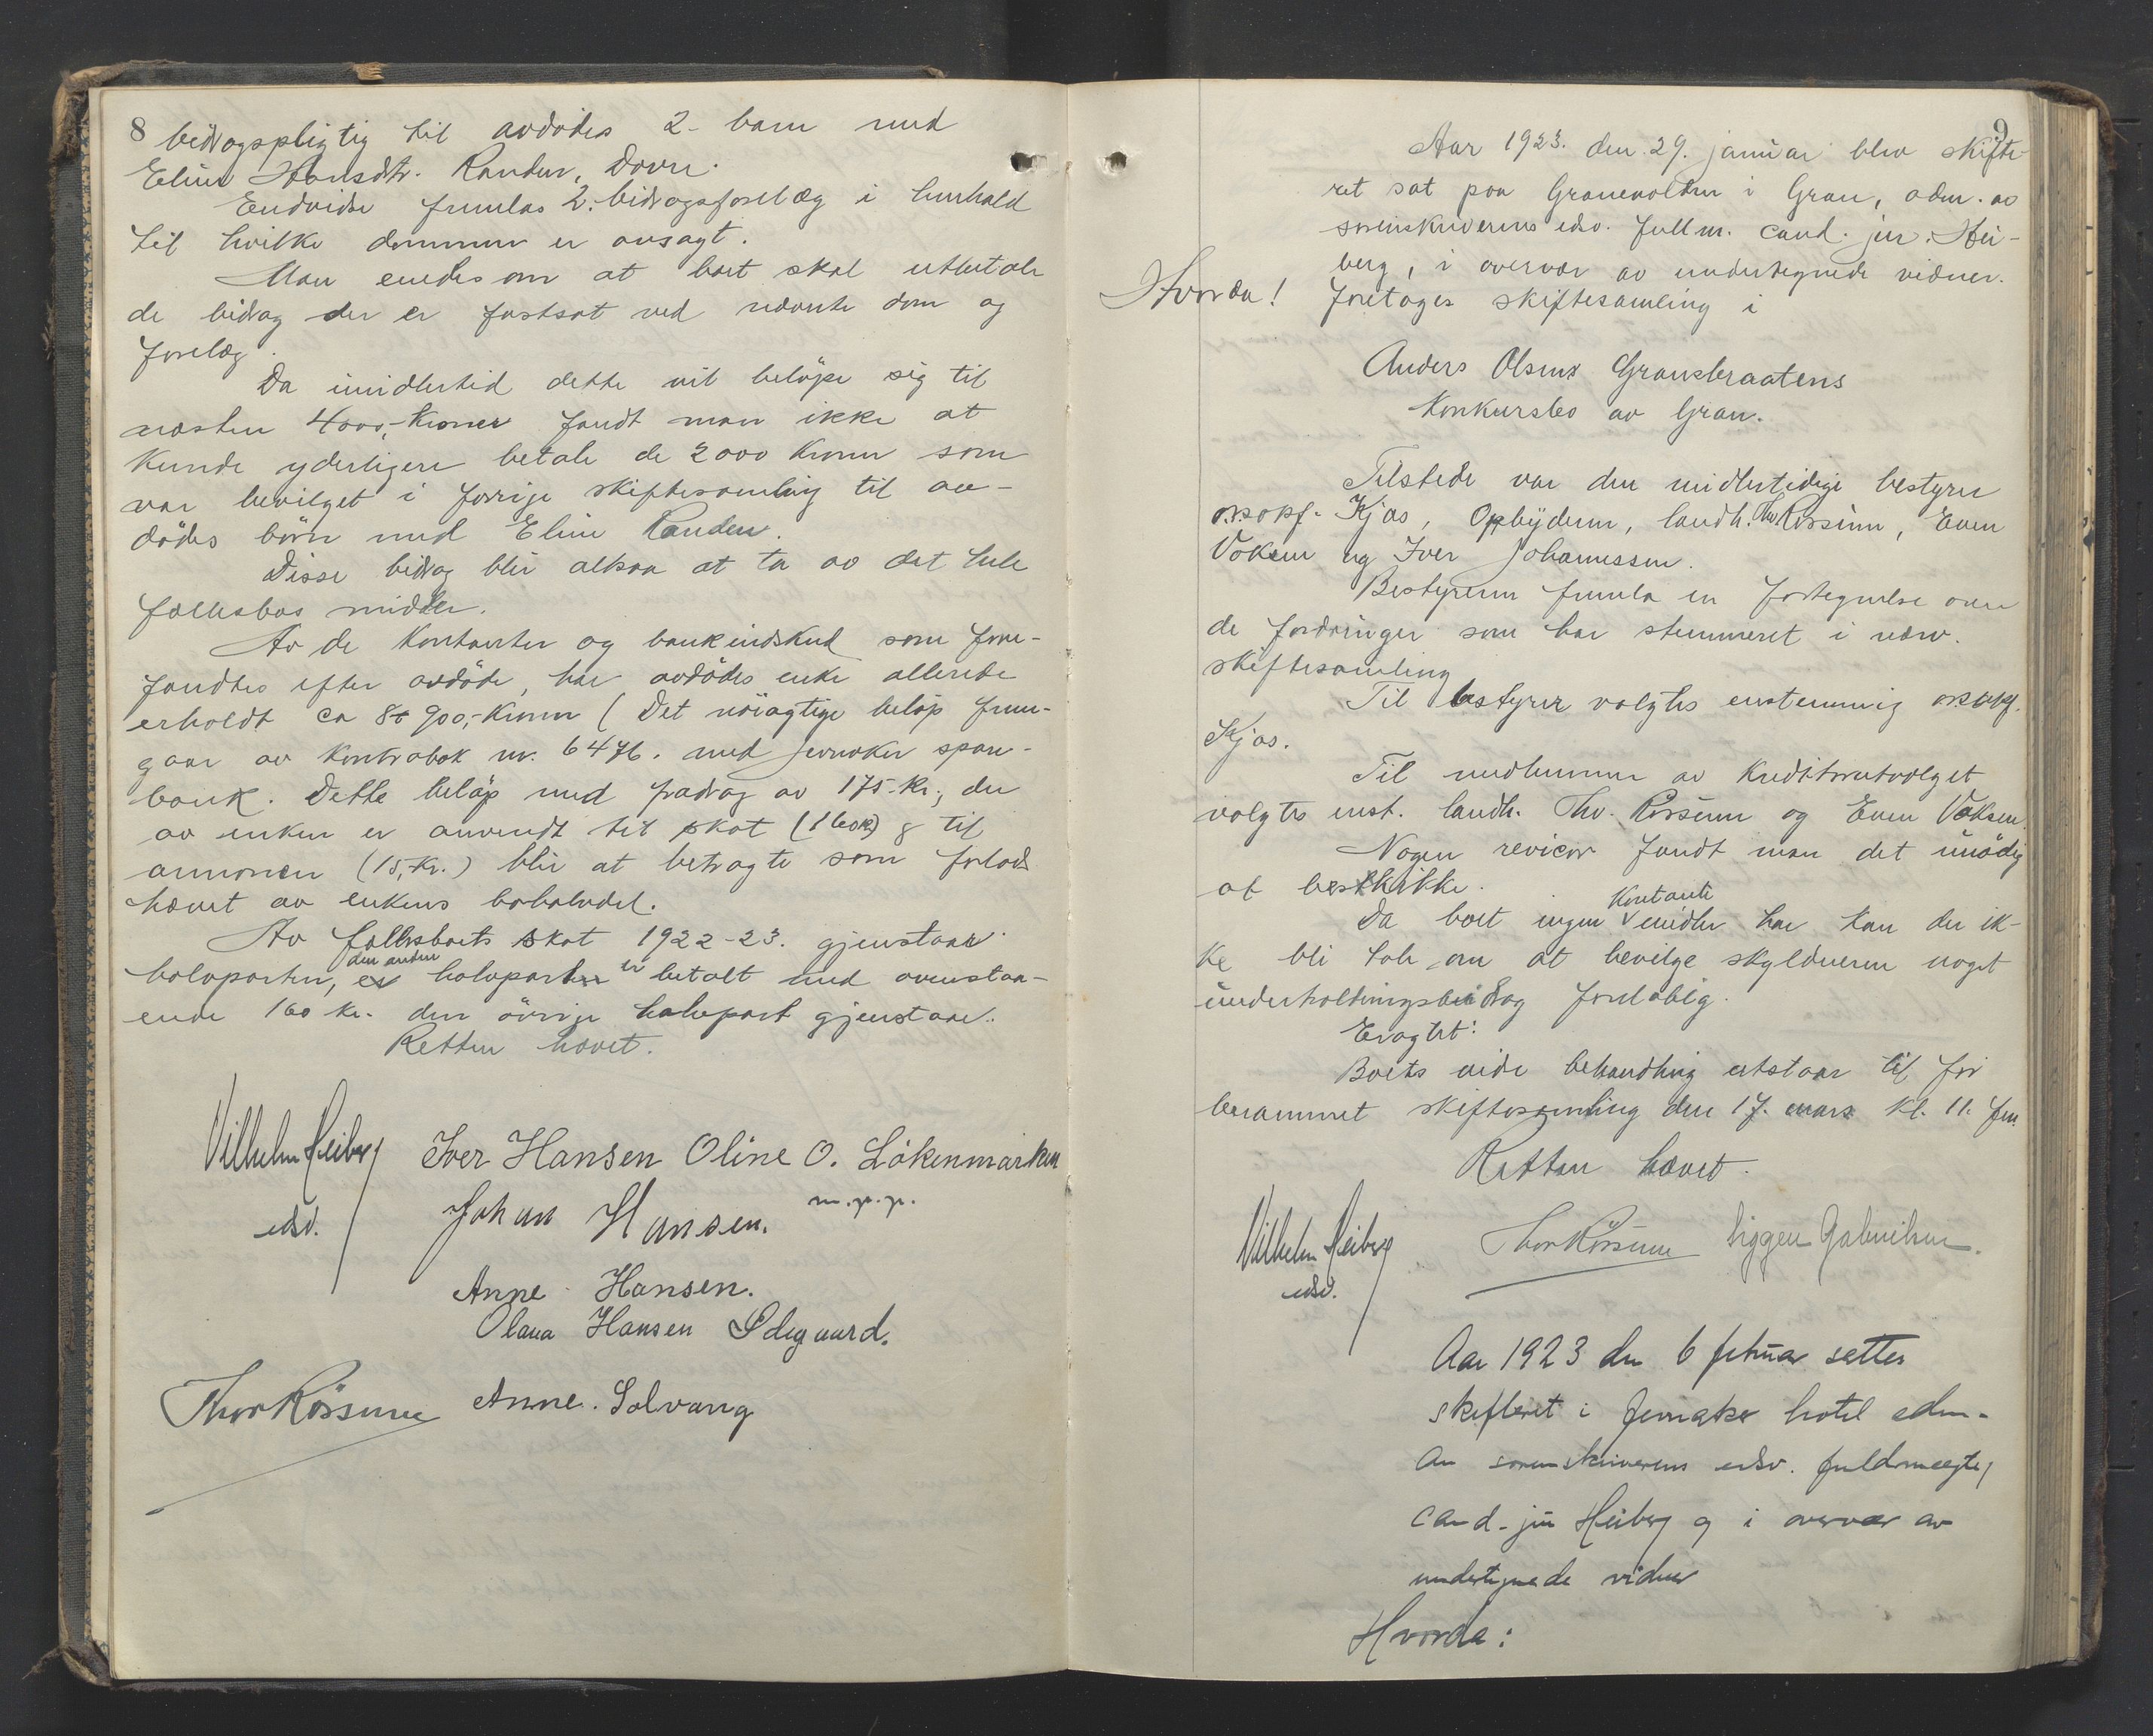 8
bidragspligtig til avdödes 2 barn med
Eline Hansdtr. Randen, Dovre.
Endvidre fremlas 2. bidragsforelæg i henhold
til hvilke dommen er avsagt.
Man enedes om at boet skal utbetale
de bidrag der er fastsat ved nævnte dom og
forelæg.
Da imidlertid dette vil belöpe sig til
næsten 4000,- kroner fandt man ikke at
kunde yderligere betale de 2000 kroner som
var bevilget i forrige skiftesamling til av-
dödes börn med Eline Randen.
Disse bidrag blir altsaa at ta av det hele
fællesbos midler.
Av de kontanter og bankindskud som fore-
fandtes efter avdöde, har avdödes enke allerede
erholdt ca 8 900,- kroner (Det nöiagtige belöp frem-
gaar av kontrabok nr. 6476. med Jevnaker spare-
bank. Dette belöp med fradrag av 175- kr., der
av enken er anvendt til skat (160 kr) & til
annoncen (15,- kr.) blir at betragte som forlods
hævet av enkens boslodel.
Av fællesboets skat 1922-23. gjenstaar
halvparten, den anden halvparten er betalt med ovenstaa-
ende 160 kr. den övrige halvpart gjenstaar.
Retten hævet.
Vilhelm Heiberg
edsv.
Iver Hansen Oline O. Lökenmarken
m.p.p.
Johan Hansen.
Anne Hansen.
Olava Hansen Ødegaard.
Thor Rossum Anne. Solvang
9
Aar 1923. den 29. januar blev skifte-
ret sat paa Granevolden i Gran, adm. av
sorenskriverens edsv. fullm. cand. jur. Hei-
berg, i overvær av undertegnede vidner.
Hvorda!
foretages skiftesamling i
Anders Olsens Gransbraatens
Konkursbo av Gran.
Tilstede var den midlertidige bestyrer
o.r.sakf. Kjos, Opbyderen, landh. Thv. Rossum, Even
Voksen og Iver Johannessen.
Bestyreren fremla en fortegnelse over
de fordringer som har stemmeret i nærv.
skiftesamling
Til bestyrer valgtes enstemmig orsakf.
Kjos.
Til medlemmer av kreditorutvalget
valgtes enst. landh. Thv. Rossum og Even Voksen.
Nogen revisor fandt man det unödig
at beskikke.
Da boet ingen kontante midler har kan der ik-
ke bli tale om at bevilge skyldneren noget
underholdningsbidrag foreløbig.
Eragtet:
Boets vidre behandling utstaar til for
berammet skiftesamling den 17. mars kl. 11. fm
Retten hævet.
Vilhelm Heiberg
edsv.
Thor Rossum Siggen Gabrielsen.
Aar 1923 den 6 februar settes
skifteret i Jevnaker hotel adm.
av sorenskriverens edsv. fuldmægtig
cand. jur Heiberg og i overvær av
undertegnede vidner
Hvorda: